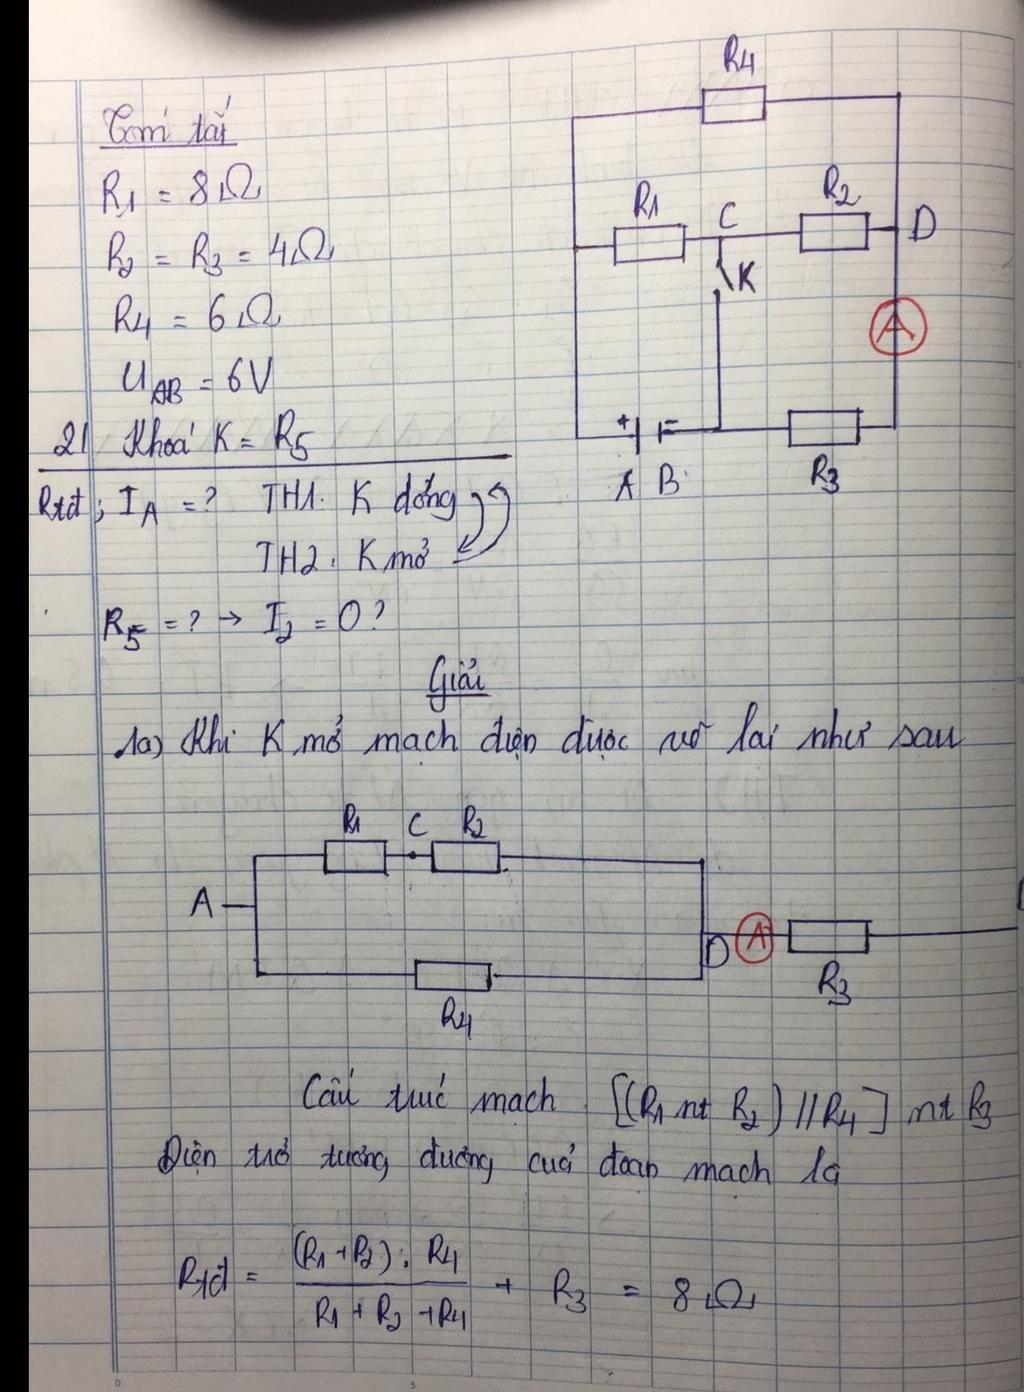 Tóm tắt
R1 = 8Ω
R2 = R3 = 4Ω
R4 = 6Ω
UAB = 6V
2/ Khoá K = R5
Rtđ; IA = ? TH1. K đóng
TH2. K mở
R5 = ? → I2 = 0?
R4
R1 C R2 D
K
A
+ =
A B R3
Giải
1a) Khi K mở mạch điện được vẽ lại như sau
R1 C R2
A
D A R3
R4
Cấu trúc mạch [(R1 nt R2) // R4] nt R3
Điện trở tương đương của đoạn mạch là
Rtđ = (R1 + R2) . R4 / R1 + R2 + R4 + R3 = 8Ω